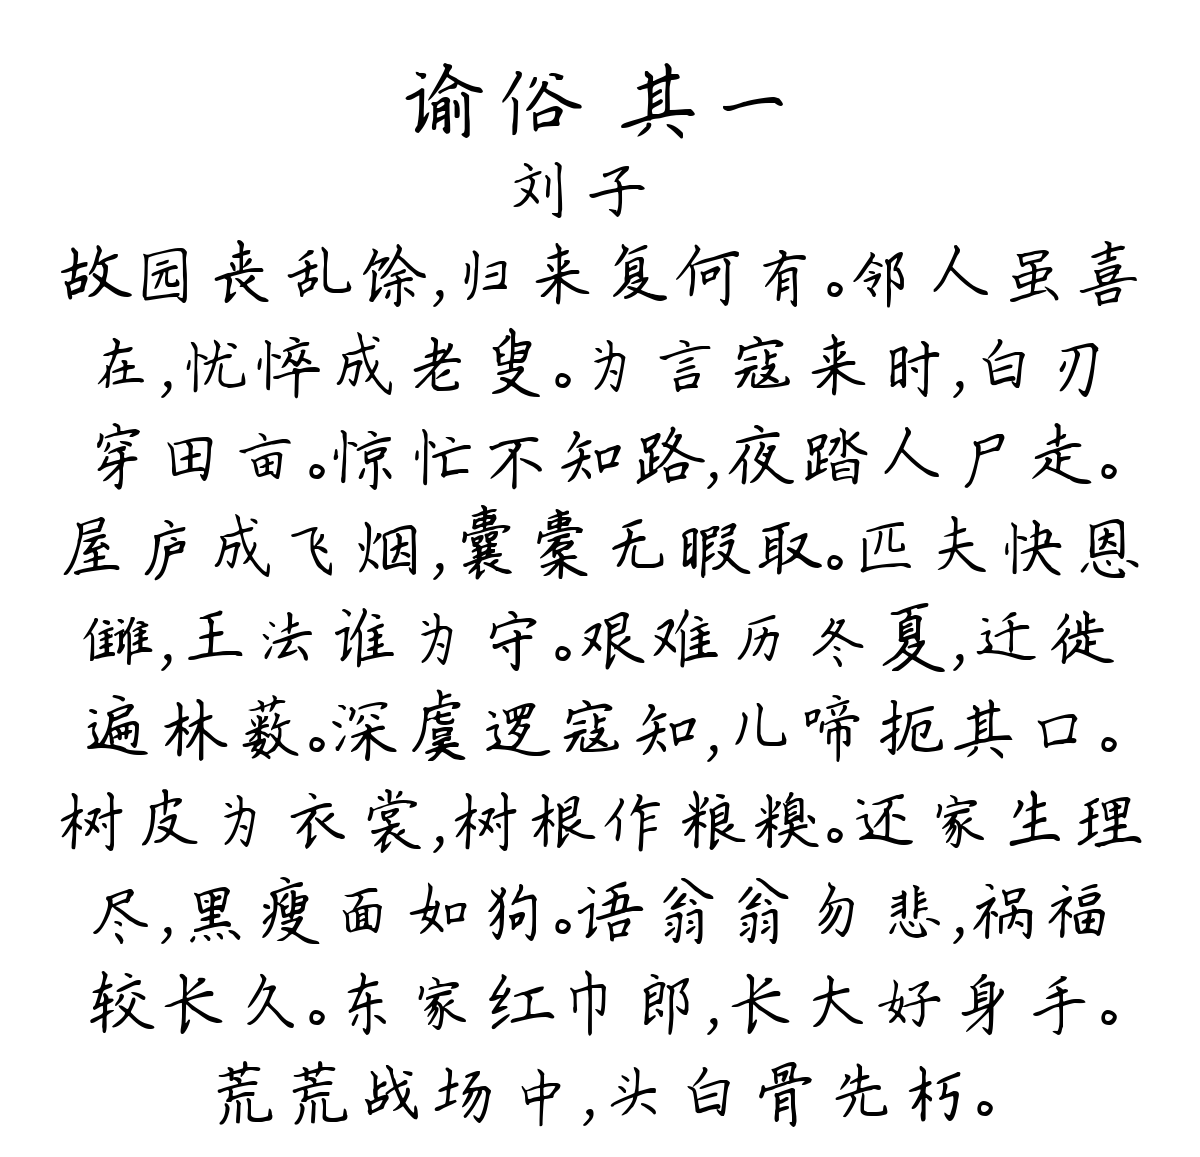 谕俗 其一
刘子
故园丧乱馀,归来复何有。邻人虽喜
在,忧悴成老叟。为言寇来时,白刃
穿田亩。惊忙不知路,夜踏人尸走。
屋庐成飞烟,囊橐无暇取。匹夫快恩
雠,王法谁为守。艰难历冬夏,迁徙
遍林薮。深虞逻寇知,儿啼扼其口。
树皮为衣裳,树根作粮糗。还家生理
尽,黑瘦面如狗。语翁翁勿悲,祸福
较长久。东家红巾郎,长大好身手。
荒荒战场中,头白骨先朽。